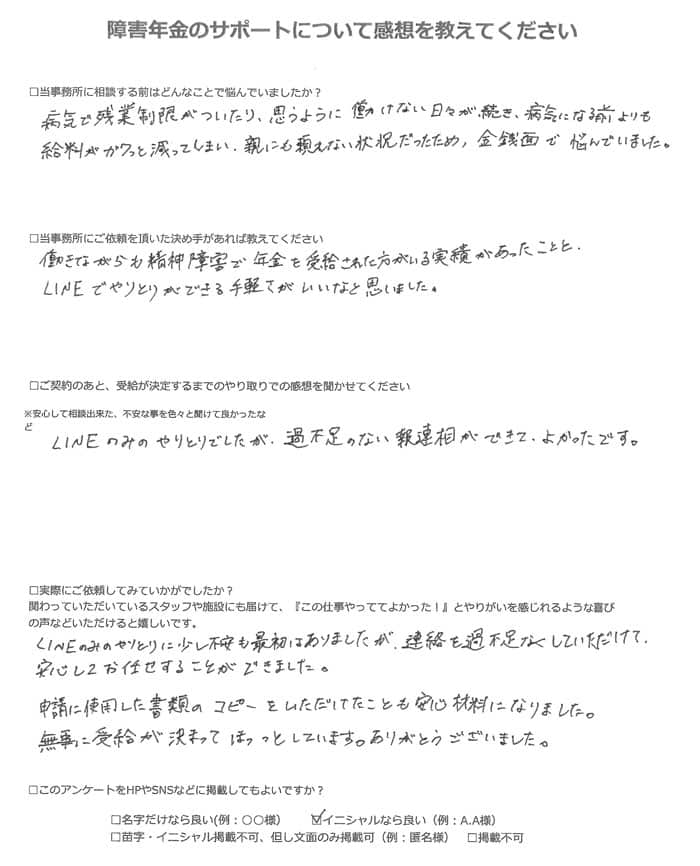 障害年金のサポートについて感想を教えてください
□当事務所に相談する前はどんなことで悩んでいましたか？
病気で残業制限がついたり、思うように働けない日々が続き、病気になる前よりも
給料がガクッと減ってしまい、親にも頼えない状況だったため、金銭面で悩んでいました。
□当事務所にご依頼を頂いた決め手があれば教えてください
働きながらも精神障害で年金を受給された方がいる実績があったことと、
LINEでやりとりができる手軽さがいいなと思いました。
□ご契約のあと、受給が決定するまでのやり取りでの感想を聞かせてください
※安心して相談出来た、不安な事を色々と聞けて良かったな
ど
LINEのみのやりとりでしたが、過不足のない報連相ができて、よかったです。
□実際にご依頼してみていかがでしたか？
関わっていただいているスタッフや施設にも届けて、『この仕事やっててよかった！』とやりがいを感じれるような喜び
の声などいただけると嬉しいです。
LINEのみのやりとりに少し不安も最初はありましたが、連絡を過不足なくしていただけて、
安心してお任せすることができました。
申請に使用した書類のコピーをいただけてたことも安心材料になりました。
無事に受給が決まってほっっとしています。ありがとうございました。
□このアンケートをHPやSNSなどに掲載してもよいですか？
□名字だけなら良い(例：〇〇様）　☑イニシャルなら良い（例：A.A様）
□苗字・イニシャル掲載不可、但し文面のみ掲載可（例：匿名様）　□掲載不可